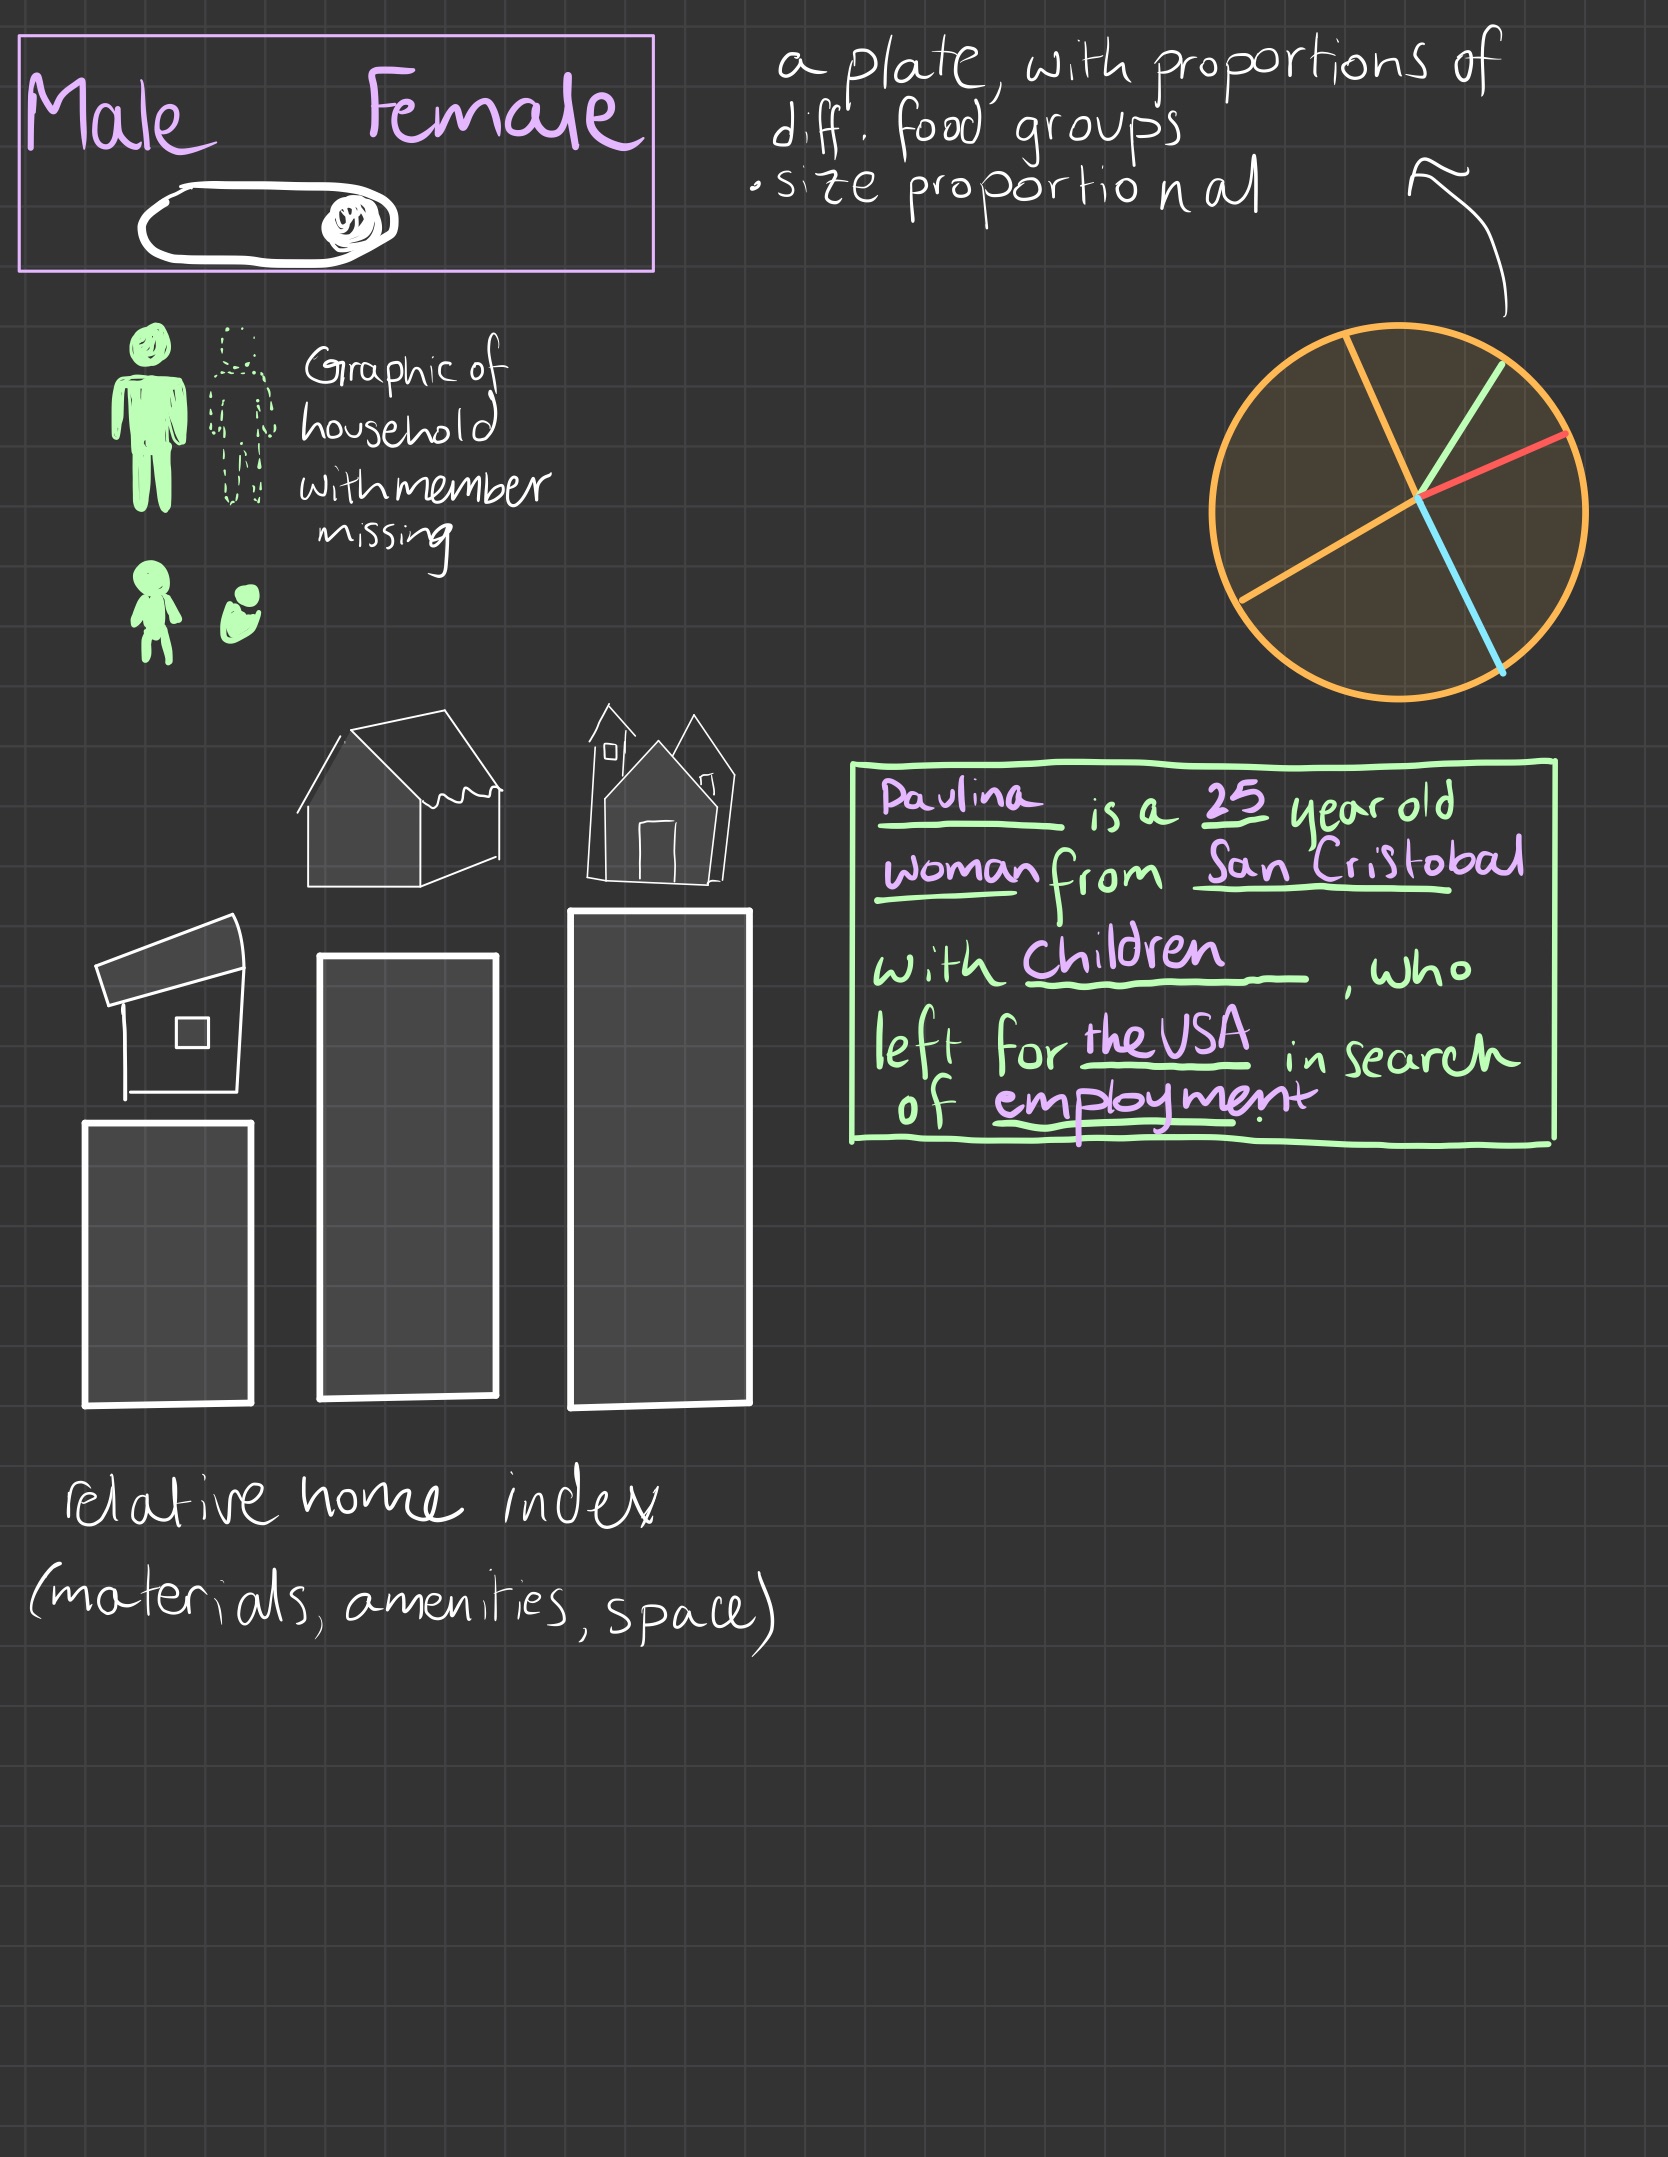 Male Female
a plate, with proportions of
diff. food groups
• size proportional
Graphic of
household
with member
missing
Paulina is a 25 year old
woman from San Cristobal
with children, who
left for the USA in search
of employment.
relative home index
(materials, amenities, space)